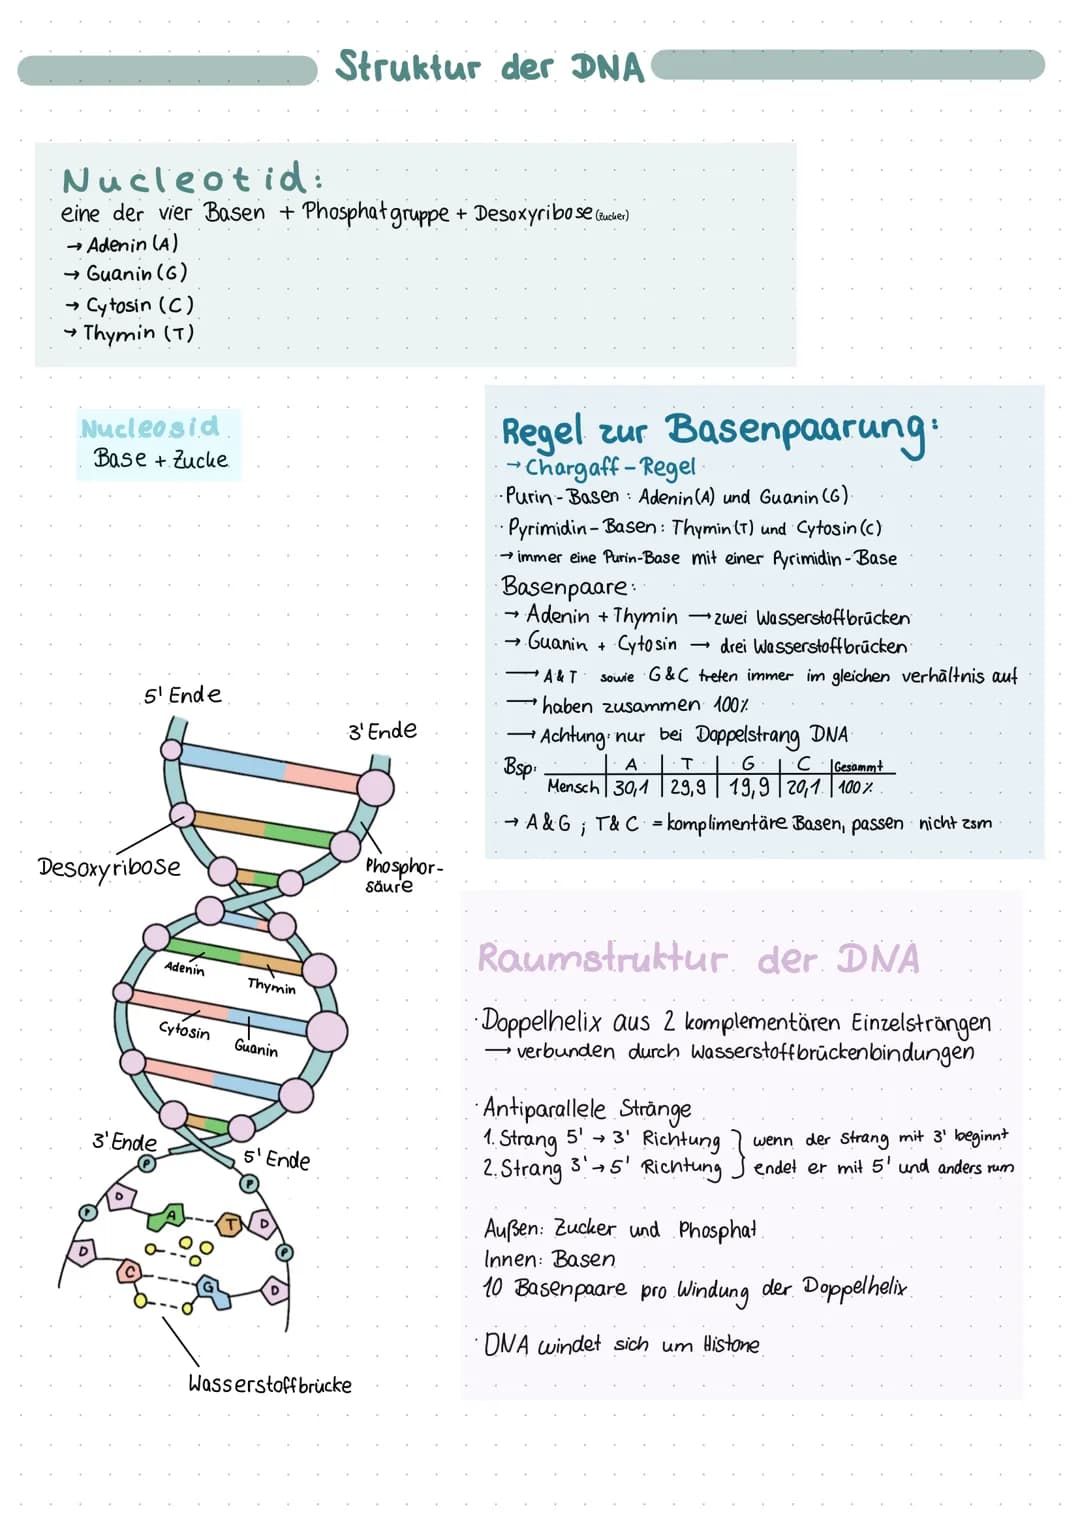 Struktur der DNA
Nucleotid:
eine der vier Basen + Phosphatgruppe + Desoxyribose (Zucker)
→ Adenin (A)
→ Guanin (G)
→ Cytosin (C)
→ Thymin (T)
Nucleosid
Base + Zucke
Regel zur Basenpaarung:
→ Chargaff-Regel
· Purin-Basen : Adenin (A) und Guanin (G)
· Pyrimidin-Basen: Thymin (T) und Cytosin (C)
→ immer eine Purin-Base mit einer Pyrimidin-Base
Basenpaare:
→ Adenin + Thymin → zwei Wasserstoffbrücken
→ Guanin + Cytosin → drei Wasserstoffbrücken
→ A & T sowie G & C treten immer im gleichen verhältnis auf
→ haben zusammen 100%
→ Achtung: nur bei Doppelstrang DNA
Bsp: A | T | G | C | Gesammt
Mensch | 30,1 | 29,9 | 19,9 | 20,1 | 100%
→ A & G ; T & C = komplimentäre Basen, passen nicht zsm
5' Ende
3' Ende
Desoxyribose
Phosphor-
säure
Adenin
Thymin
Cytosin
Guanin
3' Ende
5' Ende
P
P
D
P
A
T
D
D
P
C
G
D
Wasserstoffbrücke
Raumstruktur der DNA
· Doppelhelix aus 2 komplementären Einzelsträngen
→ verbunden durch Wasserstoffbrückenbindungen
· Antiparallele Stränge
1. Strang 5' → 3' Richtung } wenn der Strang mit 3' beginnt
2. Strang 3' → 5' Richtung } endet er mit 5' und anders rum
Außen: Zucker und Phosphat
Innen: Basen
10 Basenpaare pro Windung der Doppelhelix
· DNA windet sich um Histone